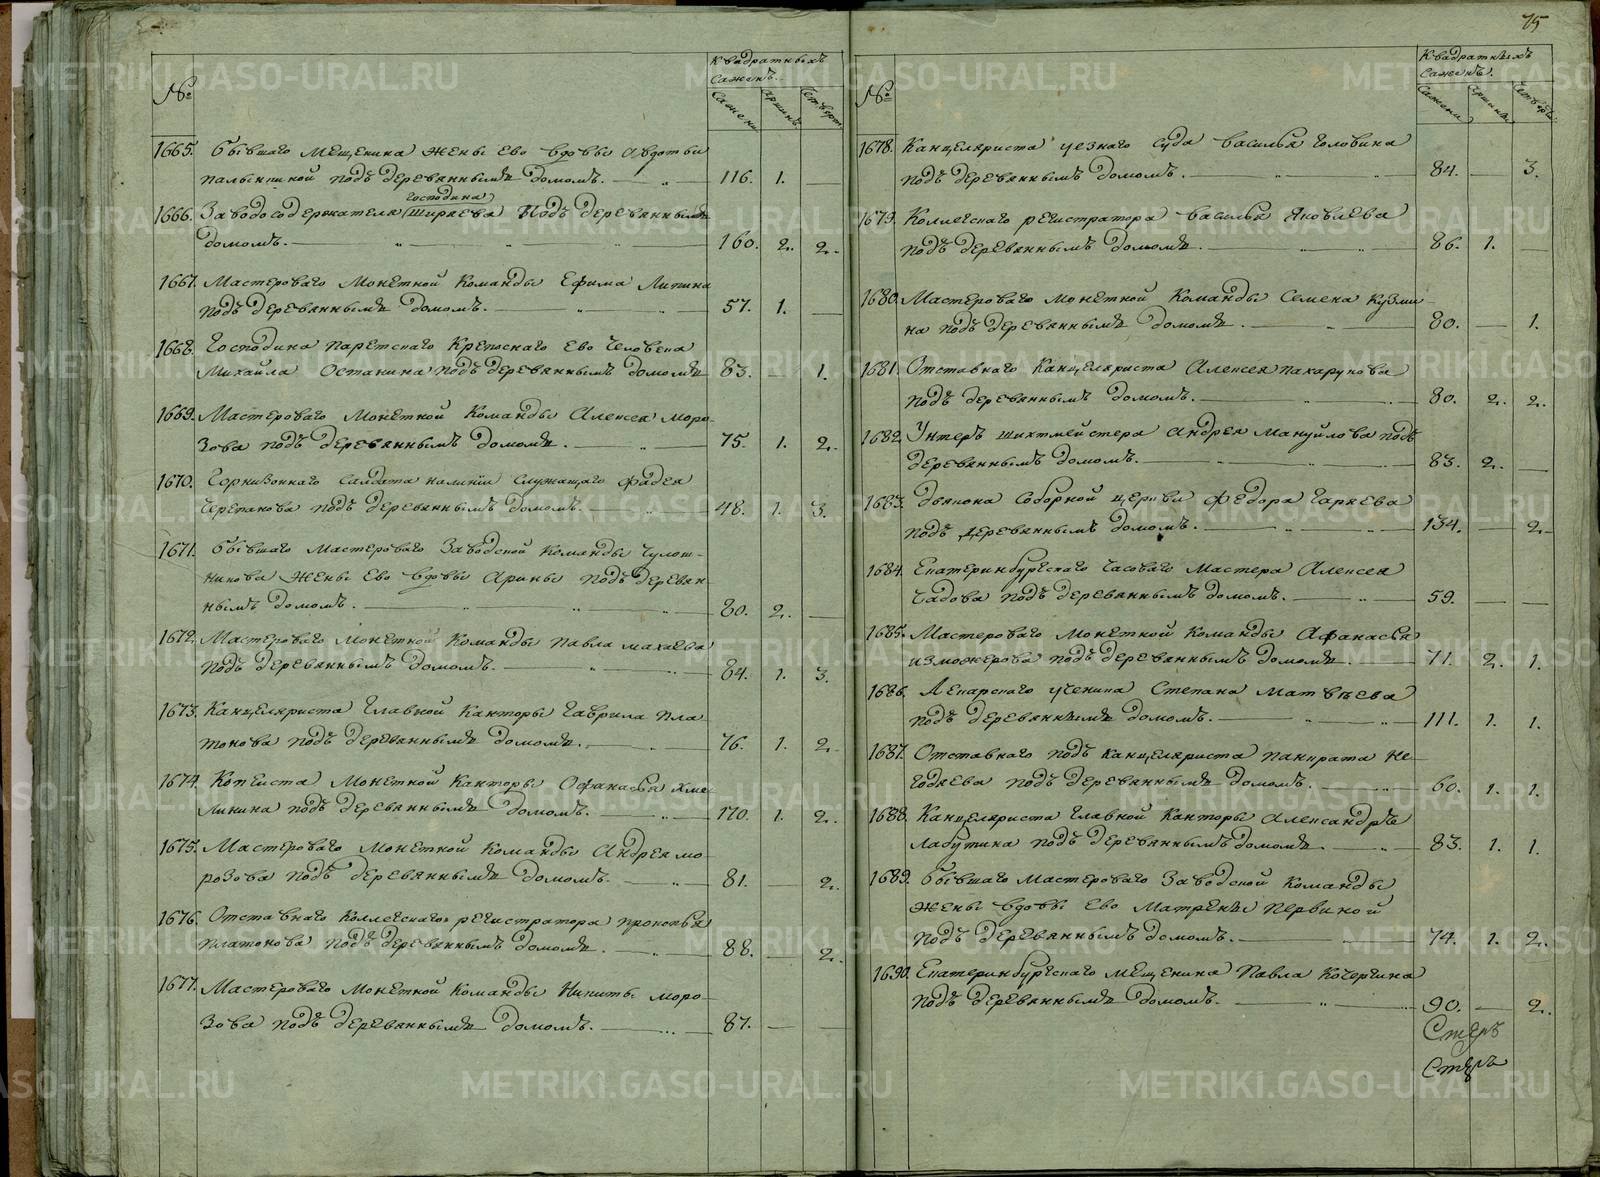 №
Квадратныхъ
саженъ.
Сажени
Аршинъ
Четверт
1665. бывшаго Мещенина Жены Ево вдовы Авдотьи
пальшиной подъ деревяннымъ домомъ. 116. 1. —
господина
1666. Заводосодержателя Ширяева подъ деревяннымъ
домомъ. 160. 2. 2.
1667. Мастероваго Монетной Команды Ефима Липина
подъ деревяннымъ домомъ. 57. 1. —
1668. Господина Крепоснаго Ево человека
Михайла Останина подъ деревяннымъ домомъ 83. — 1.
1669. Мастероваго Монетной Команды Алексея Моро-
зова подъ деревяннымъ домомъ. 75. 1. 2.
1670. Горнизоннаго Салдата на линии служащаго Фадея
Черепанова подъ деревяннымъ домомъ. 48. 1. 3.
1671. бывшаго Мастероваго Заводской Команды Чулош-
никова Жены Ево вдовы Арины подъ деревян-
нымъ домомъ. 80. 2. —
1672. Мастероваго Монетной Команды Павла Махаева
подъ деревяннымъ домомъ. 84. 1. 3.
1673. Канцеляриста Главной Канторы Гаврила Пла
тонова подъ деревяннымъ домомъ. 76. 1. 2.
1674. Копеиста Монетной Канторы Офанасья Хме
линина подъ деревяннымъ домомъ. 170. 1. 2.
1675. Мастероваго Монетной Команды Андрея мо-
розова подъ деревяннымъ домомъ. 81. — 2.
1676. Отставнаго Коллегскаго регистратора прокопья
платонова подъ деревяннымъ домомъ. 88. — 2.
1677. Мастероваго Монетной Команды Никиты моро-
зова подъ деревяннымъ домомъ. 87. — —
75
№
Квадратныхъ
саженъ.
Сажени
Аршинъ
Четверт.
1678. Канцеляриста уезнаго суда василья Головина
подъ деревяннымъ домомъ. 84. — 3.
1679. Коллегскаго регистратора василья Яковлева
подъ деревяннымъ домомъ. 86. 1.
1680. Мастероваго Монетной Команды Семена Кузми-
на подъ деревяннымъ домомъ. 80. — 1.
1681. Отставнаго Канцеляриста Алексея
подъ деревяннымъ домомъ. 80. 2. 2.
1682. Унтеръ шихтмейстера Андрея Мануйлова подъ
деревяннымъ домомъ. 83. 2. —
1683. Дьякона Соборной церкви Федора Гаряева
подъ деревяннымъ домомъ. 134. — 2.
1684. Екатеринбургскаго часоваго Мастера Алексея
Чадова подъ деревяннымъ домомъ. 59. — —
1685. Мастероваго Монетной Команды Афанасья
изможерова подъ деревяннымъ домомъ. 71. 2. 1.
1686. Лекарскаго ученика Степана Матвеева
подъ деревяннымъ домомъ. 111. 1. 1.
1687. Отставнаго подъ Канцеляриста панкрата Не-
годяева подъ деревяннымъ домомъ. 60. 1. 1.
1688. Канцеляриста Главной Канторы Александръ
Лабутина подъ деревяннымъ домомъ. 83. 1. 1.
1689. бывшаго Мастероваго Заводской Команды
Жены вдовы Ево Матрены первиной
подъ деревяннымъ домомъ. 74. 1. 2.
1690. Екатеринбургскаго Мещенина Павла Кочергина
подъ деревяннымъ домомъ. 90. — 2.
METRIKI.GASO-URAL.RU